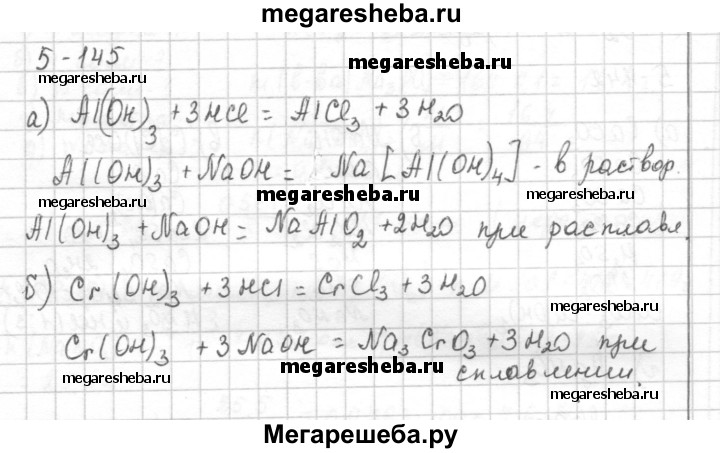 megaresheba.ru
5-145
megaresheba.ru
megaresheba.ru
а) Al(OH)3 + 3HCl = AlCl3 + 3H2O
megaresheba.ru
Al(OH)3 + NaOH = Na[Al(OH)4] - в раствор.
megaresheba.ru
megaresheba.ru
Al(OH)3 + NaOH = NaAlO2 + 2H2O при расплавл.
б) Cr(OH)3 + 3HCl = CrCl3 + 3H2O
megaresheba.ru
Cr(OH)3 + 3NaOH = Na3CrO3 + 3H2O при
megaresheba.ru
megaresheba.ru
сплавлении.
megaresheba.ru
Мегарешеба.ру